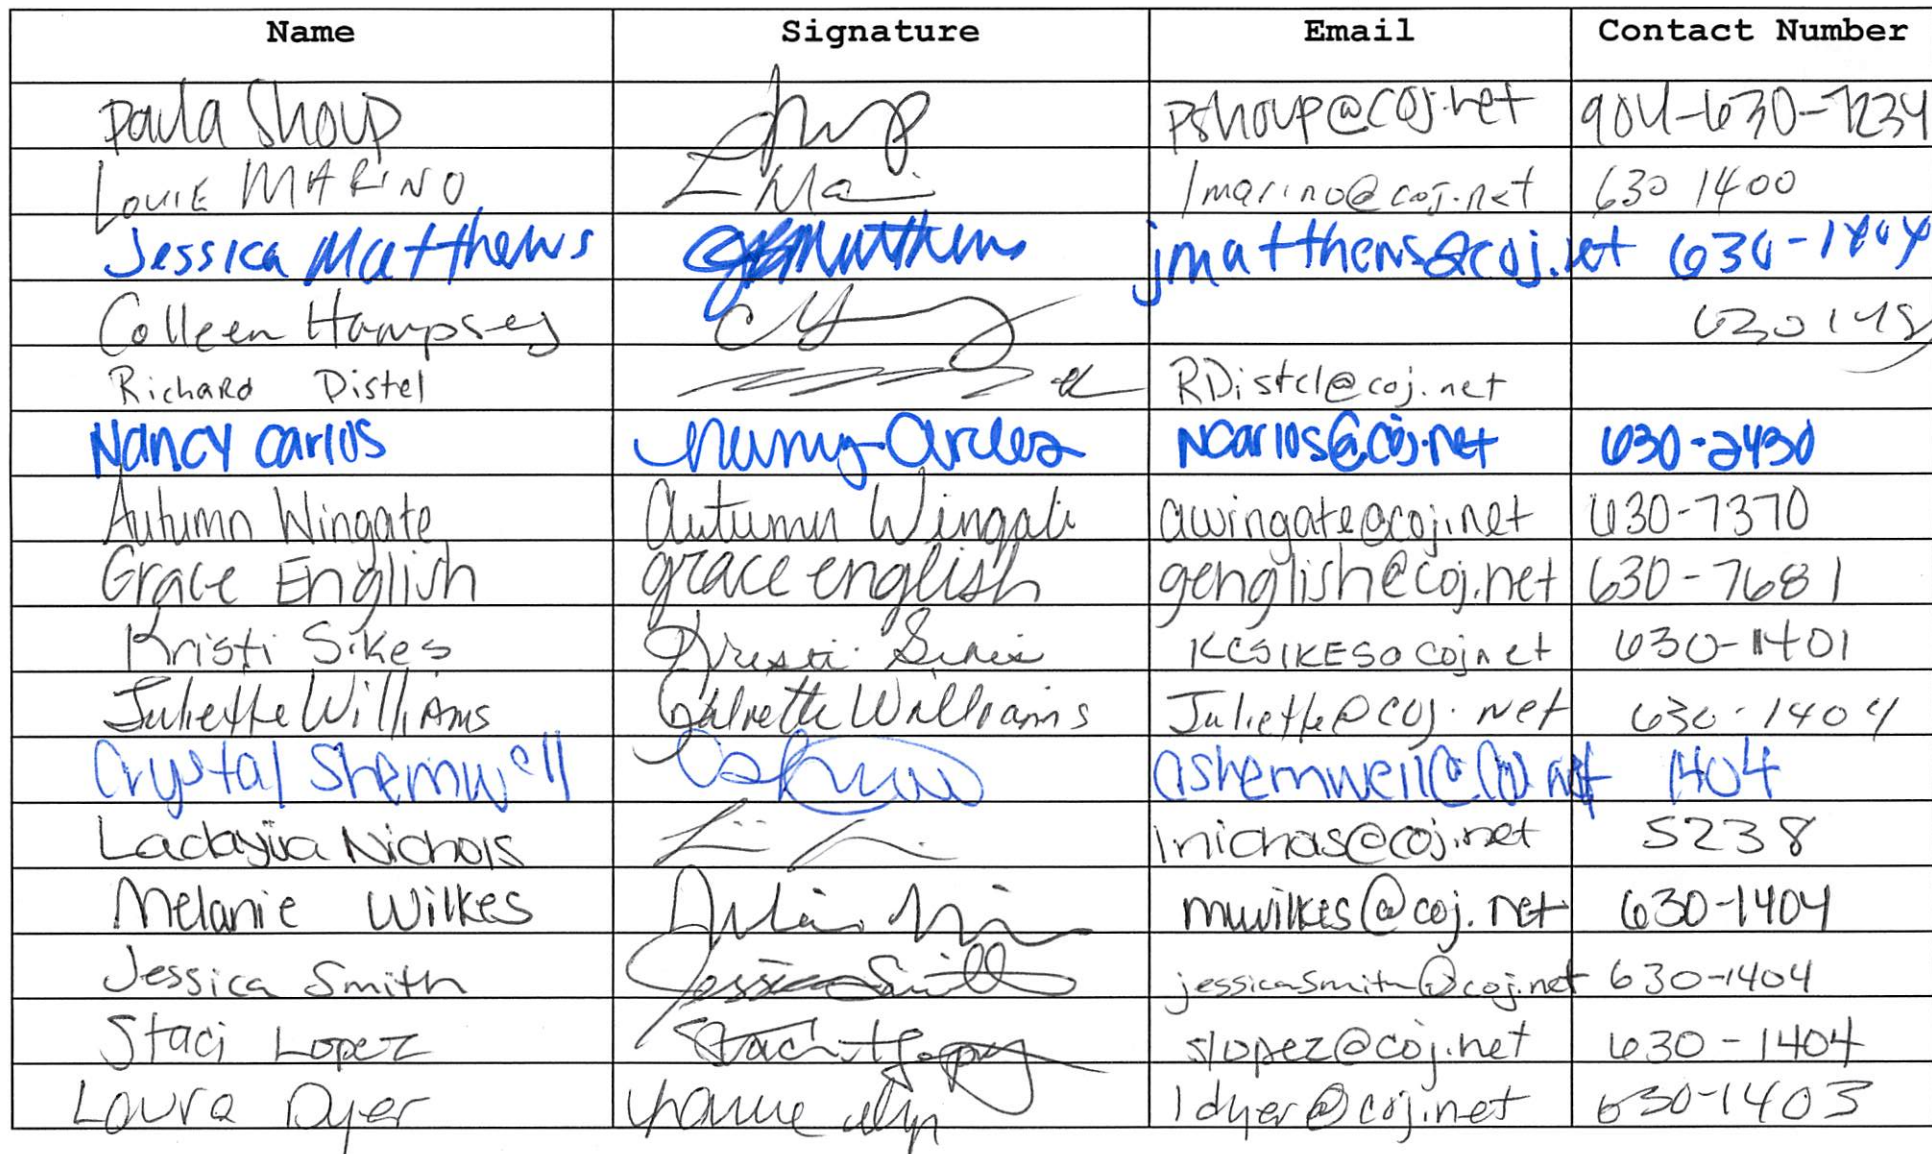 Name Signature Email Contact Number
Paula Shoup pshoup@coj.net 904-630-7234
Louie MARINO L Mai lmarino@coj.net 630 1400
Jessica Matthews JMatthews jmatthews@coj.net 630-1404
Colleen Hampsey
Richard Distel RDistel@coj.net
Nancy Carlos Nancy Carlos Ncarlos@coj.net 630-2430
Autumn Wingate Autumn Wingate awingate@coj.net 630-7370
Grace English grace english genglish@coj.net 630-7681
Kristi Sikes Kristi Sikes KCSIKES@coj.net 630-1401
Juliette Williams Juliette Williams Juliette@coj.net 630-1404
Crystal Shemwell cshemwell@coj.net 1404
Ladayija Nichols lnichols@coj.net 5238
Melanie Wilkes mwilkes@coj.net 630-1404
Jessica Smith Jessica Smith jessicasmith@coj.net 630-1404
Staci Lopez Staci Lopez slopez@coj.net 630-1404
Laura Dyer ldyer@coj.net 630-1403